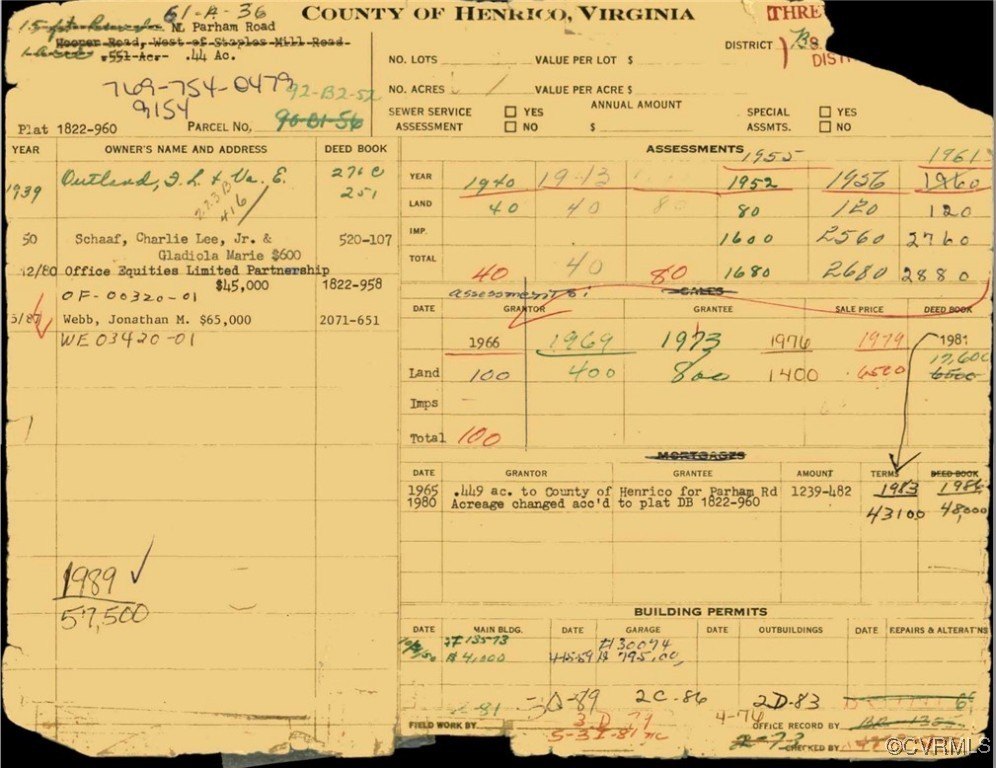 COUNTY OF HENRICO, VIRGINIA
61-A-36
NL Parham Road
Hooper Road, West of Staples Mill Road
.551 Ac. .44 Ac.
769-754-0479
9154
92-B2-52
Plat 1822-960 PARCEL NO. 90-B1-56
THRE
DISTRICT
DIST
NO. LOTS VALUE PER LOT $
NO. ACRES VALUE PER ACRE $
SEWER SERVICE ASSESSMENT YES NO
ANNUAL AMOUNT $
SPECIAL ASSMTS. YES NO
YEAR OWNER'S NAME AND ADDRESS DEED BOOK
1939 Outland, I. L. & Va. E. 276 C
251
223 B
416
50 Schaaf, Charlie Lee, Jr. & 520-107
Gladiola Marie $600
12/80 Office Equities Limited Partnership
$45,000 1822-958
OF-00320-01
5/87 Webb, Jonathan M. $65,000 2071-651
WE03420-01
1989 ✓
57,500
ASSESSMENTS
1955 1961
YEAR 1940 19-13 1952 1956 1960
LAND 40 40 8 80 120 120
IMP. 1600 2560 2760
TOTAL 40 40 80 1680 2680 2880
assessments:
SALES
DATE GRANTOR GRANTEE SALE PRICE DEED BOOK
1966 1969 1973 1976 1979 1981
17,600
Land 100 400 800 1400 6500 6500
Imps
Total 100
MORTGAGES
DATE GRANTOR GRANTEE AMOUNT TERMS DEED BOOK
1965 .449 ac. to County of Henrico for Parham Rd 1239-482 1983 1986
1980 Acreage changed acc'd to plat DB 1822-960
43100 48,000
BUILDING PERMITS
DATE MAIN BLDG. DATE GARAGE DATE OUTBUILDINGS DATE REPAIRS & ALTERAT'NS
#13573 #30074
$4,000 4-15-59 $795.00
3D-79 2C-86 2D-83
-81 3-D-79 4-76
FIELD WORK BY 5-3I-81 OFFICE RECORD BY
2-73 CHECKED BY
©CVRMLS